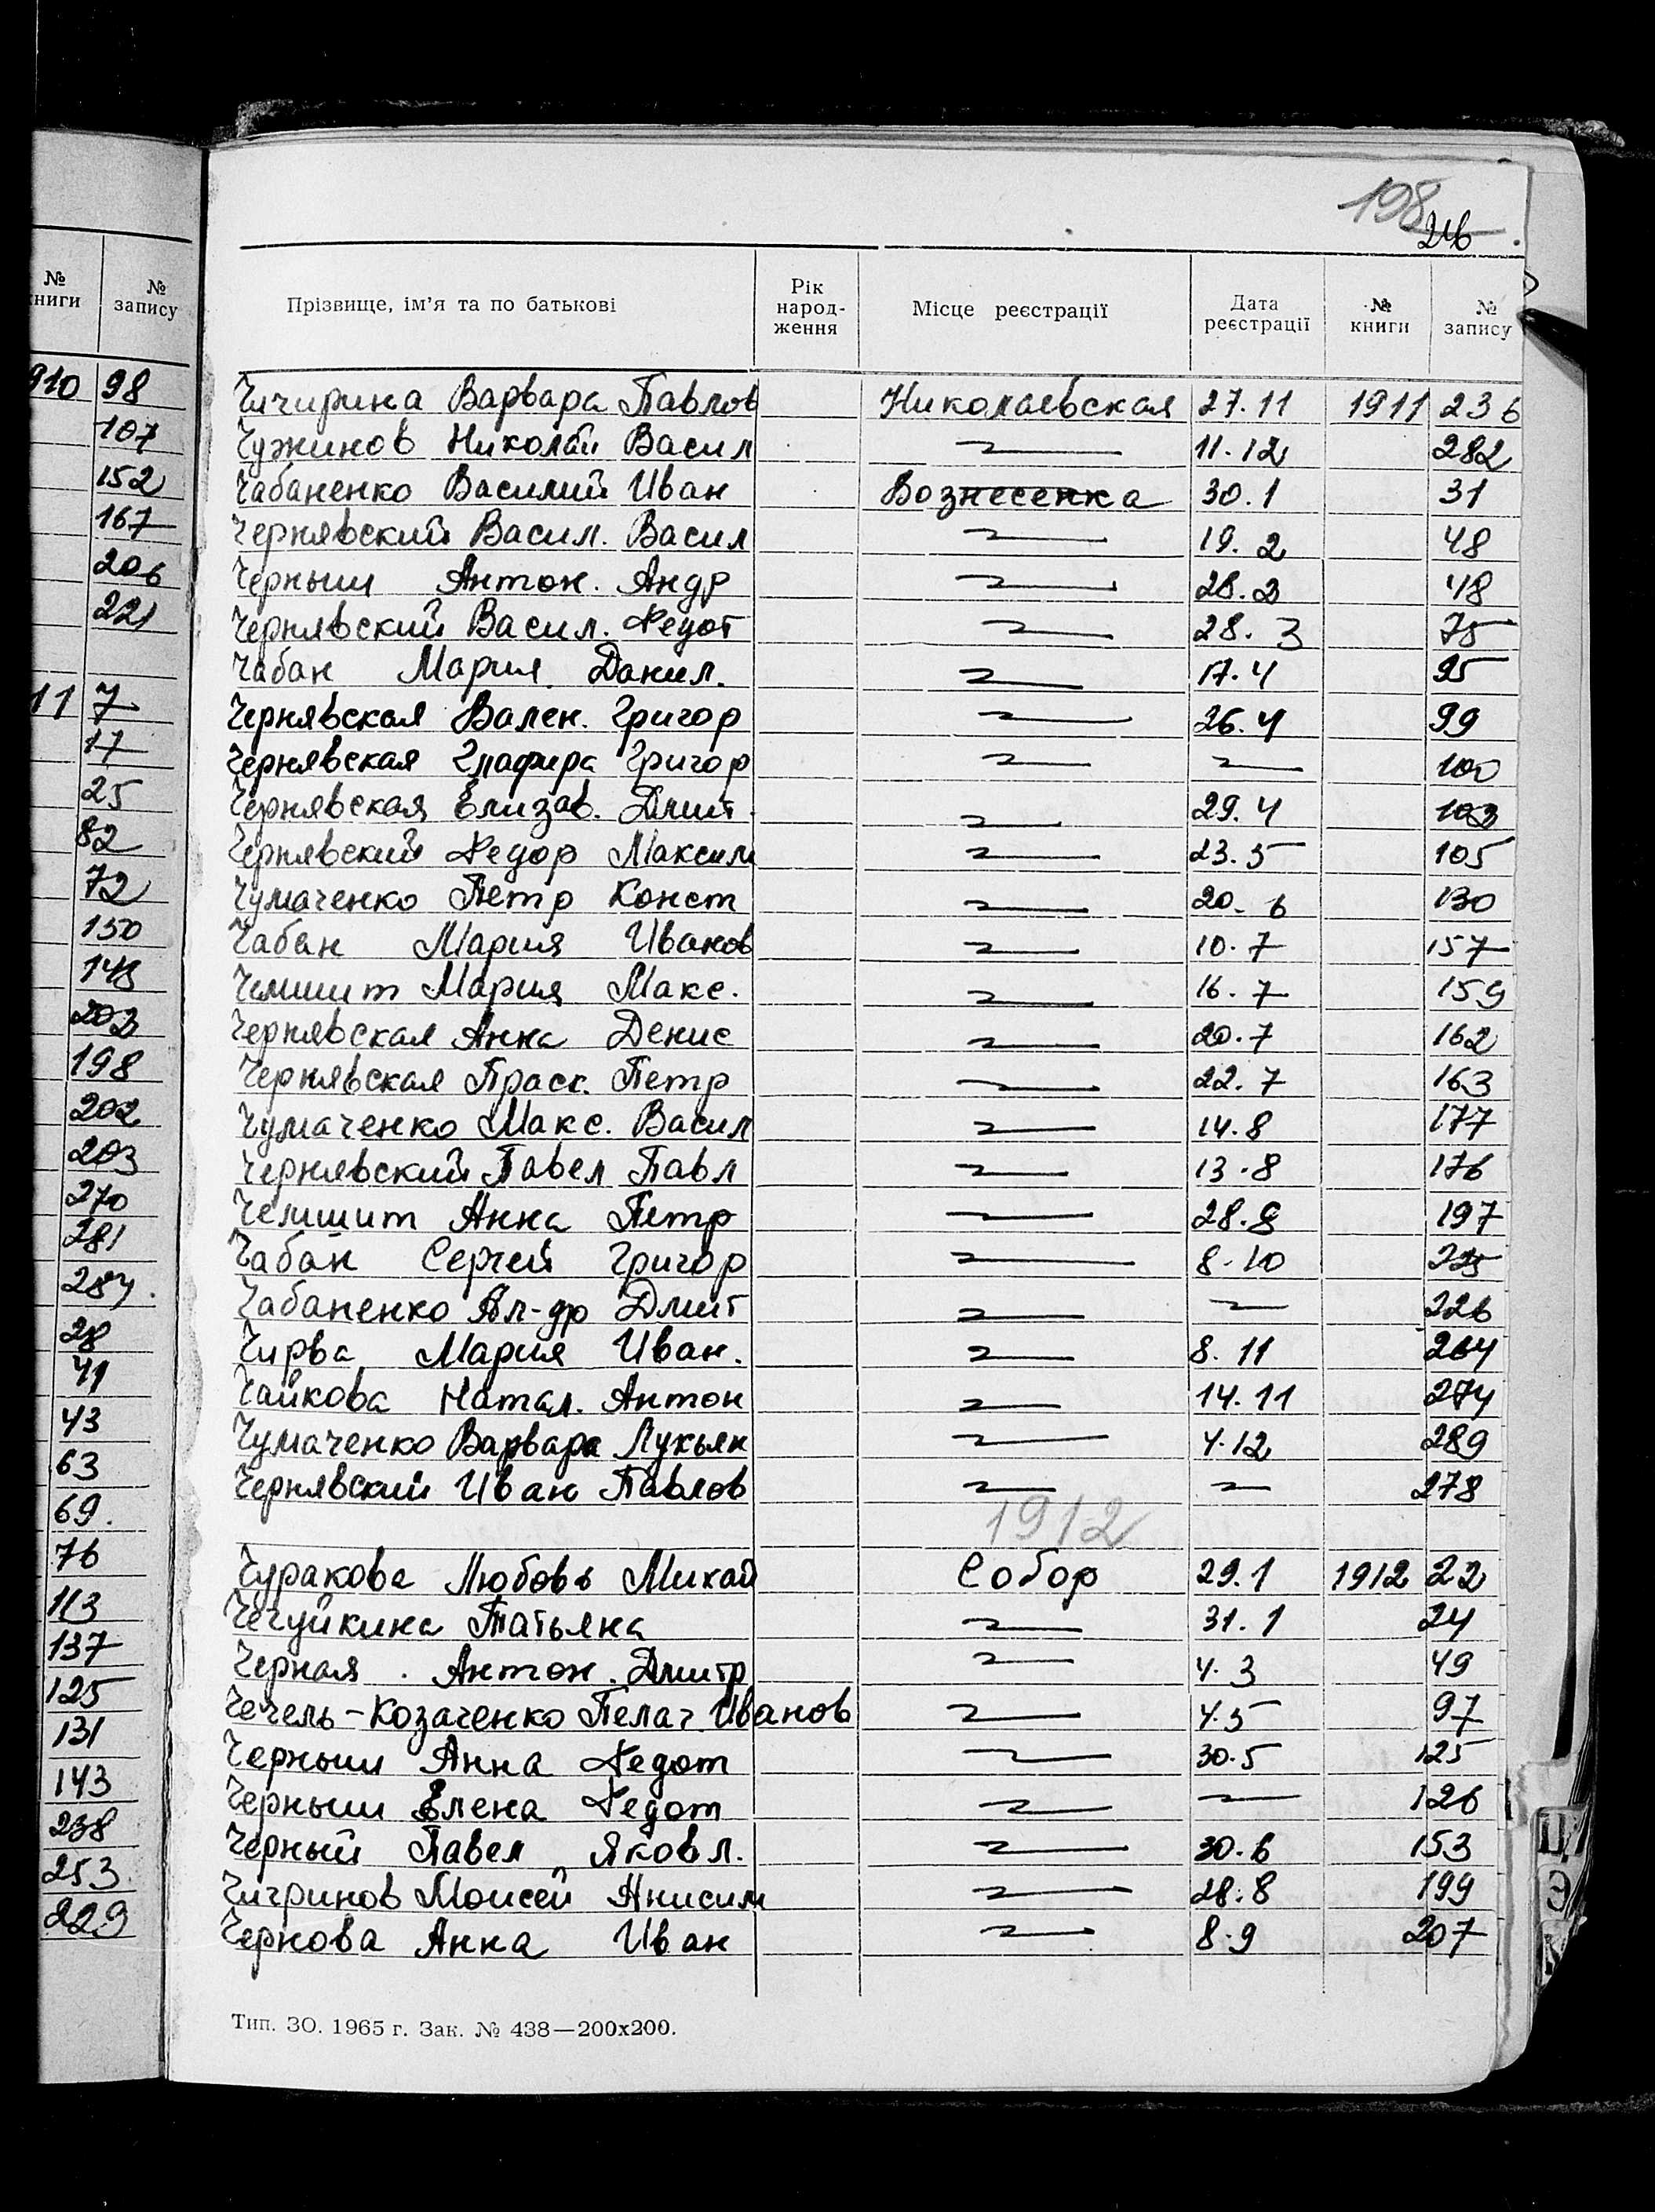 198
216
№ книги № запису
910 98
107
152
167
206
221
11 7
17
25
82
72
150
148
202
198
202
203
270
281
284.
28
41
43
63
69.
76
113
137
125
131
143
238
253
229
Прізвище, ім'я та по батькові Рік народ-ження Місце реєстрації Дата реєстрації № книги № запису
Чичирина Варвара Павлов Николаевская 27.11 1911 236
Чужинов Николай Васил — 11.12 282
Чабаненко Василий Иван Вознесенка 30.1 31
Чернявский Васил. Васил — 19.2 48
Черныш Антон. Андр — 28.2 48
Чернявский Васил. Федот — 28.3 75
Чабан Мария Данил. — 17.4 95
Чернявская Вален. Григор — 26.4 99
Чернявская Глафира Григор — — 100
Чернявская Елизав. Дмит. — 29.4 103
Чернявский Федор Максим — 23.5 105
Чумаченко Петр Конст — 20.6 130
Чабан Мария Иванов — 10.7 157
Чемшит Мария Макс. — 16.7 159
Чернявская Анна Денис — 20.7 162
Чернявская Праск. Петр — 22.7 163
Чумаченко Макс. Васил — 14.8 177
Чернявский Павел Павл — 13.8 176
Чемшит Анна Петр — 28.8 197
Чабан Сергей Григор — 8.10 225
Чабаненко Ал-др Дмит — — 226
Чирва Мария Иван. — 8.11 264
Чайкова Натал. Антон — 14.11 274
Чумаченко Варвара Лукьян — 4.12 289
Чернявский Иван Павлов — — 278
1912
Чуракова Любовь Михай Собор 29.1 1912 22
Чечуйкина Татьяна — 31.1 24
Черная . Антон. Дмитр — 4.3 49
Чечель-Козаченко Пелаг. Иванов — 4.5 97
Черныш Анна Федот — 30.5 125
Черныш Елена Федот — — 126
Черный Павел Яковл. — 30.6 153
Чигринов Моисей Анисим — 28.8 199
Чернова Анна Иван — 8.9 207
Тип. ЗО. 1965 г. Зак. № 438—200х200.